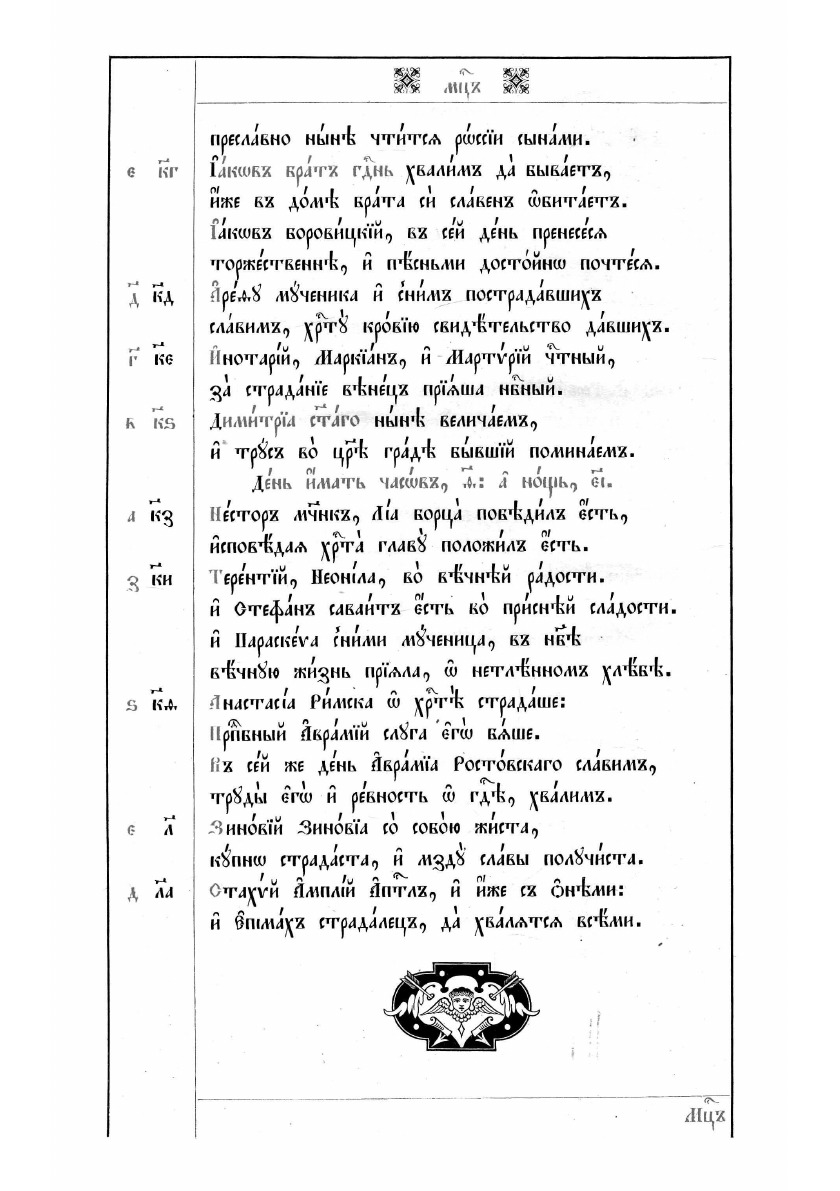 мцⷭ҇ъ
пресла́внѡ ны́нѣ чти́тся рѡссі́и сына́ми.
є҃ к҃г І҆а́кѡвъ бра́тъ гдⷭ҇нь хвали́мъ да̀ быва́етъ,
и҆́же въ до́мѣ бра́та сѝ сла́венъ ѡ҆бита́етъ.
І҆а́кѡвъ борови́цкїй, въ се́й де́нь пренесе́ся
торже́ственнѣ, и҆ пѣ́сньми досто́йнѡ почте́ся.
д҃ к҃д А҆ре́ѳу мꙋ́ченика и҆ сни́мъ пострада́вшихъ
сла́вимъ, хрⷭ҇тꙋ̀ кро́вїю свидѣ́тельство да́вшихъ.
г҃ к҃є И҆нотарі́й, Маркїа́нъ, и҆ Мартѵ́рїй чⷭ҇тный,
за̀ страда́нїе вѣне́цъ прїѧ́ша нбⷭ҇ный.
в҃ к҃ѕ Дими́трїа ст҃а́го ны́нѣ велича́емъ,
и҆ трꙋ́съ во̀ цр҃ѣ гра́дѣ бы́вшїй помина́емъ.
Де́нь и҆́мать часѡ́въ, ѳ҃: а҆̀ но́щь, є҃і.
а҃ к҃з Не́сторъ мч҃нкъ, Лі́а борца̀ побѣди́лъ є҆́сть,
и҆сповѣ́даѧ хрⷭ҇та̀ главꙋ̀ положи́лъ є҆́сть.
з҃ к҃и Тере́нтїй, Неони́ла, во̀ вѣ́чнѣй ра́дости.
и҆ Стефа́нъ савва́итъ є҆́сть во̀ при́снѣй сла́дости.
и҆ Параске́ѵа сни́ми мꙋ́ченица, въ нб҃ѣ
вѣ́чную жи́знь прїѧ́ла, ѡ҆ нетлѣ́нномъ хлѣ́бѣ.
ѕ҃ к҃ѳ Анастасі́а Ри́мска ѡ҆ хрⷭ҇тѣ̀ страда́ше:
Прпⷣбный А҆вра́мїй слꙋга̀ є҆гѡ̀ бѧ́ше.
Въ се́й же де́нь А҆вра́мїа Росто́вскаго сла́вимъ,
трꙋды̀ є҆гѡ̀ и҆ ре́вность ѡ҆ гдⷭ҇ѣ, хвали́мъ.
є҃ л҃ Зино́вїй Зино́вїа со̀ собо́ю жи́ста,
кꙋ́пнѡ страда́ста, и҆ мздꙋ̀ сла́вы полꙋчи́ста.
д҃ л҃а Стахѵ́й А҆мплі́й А҆пⷭ҇тлъ, и҆ и҆́же съ ѻ҆́нѣми:
и҆ Є҆піма́хъ страда́лецъ, да̀ хва́лѧтсѧ всѣ́ми.
Мцⷭ҇ъ